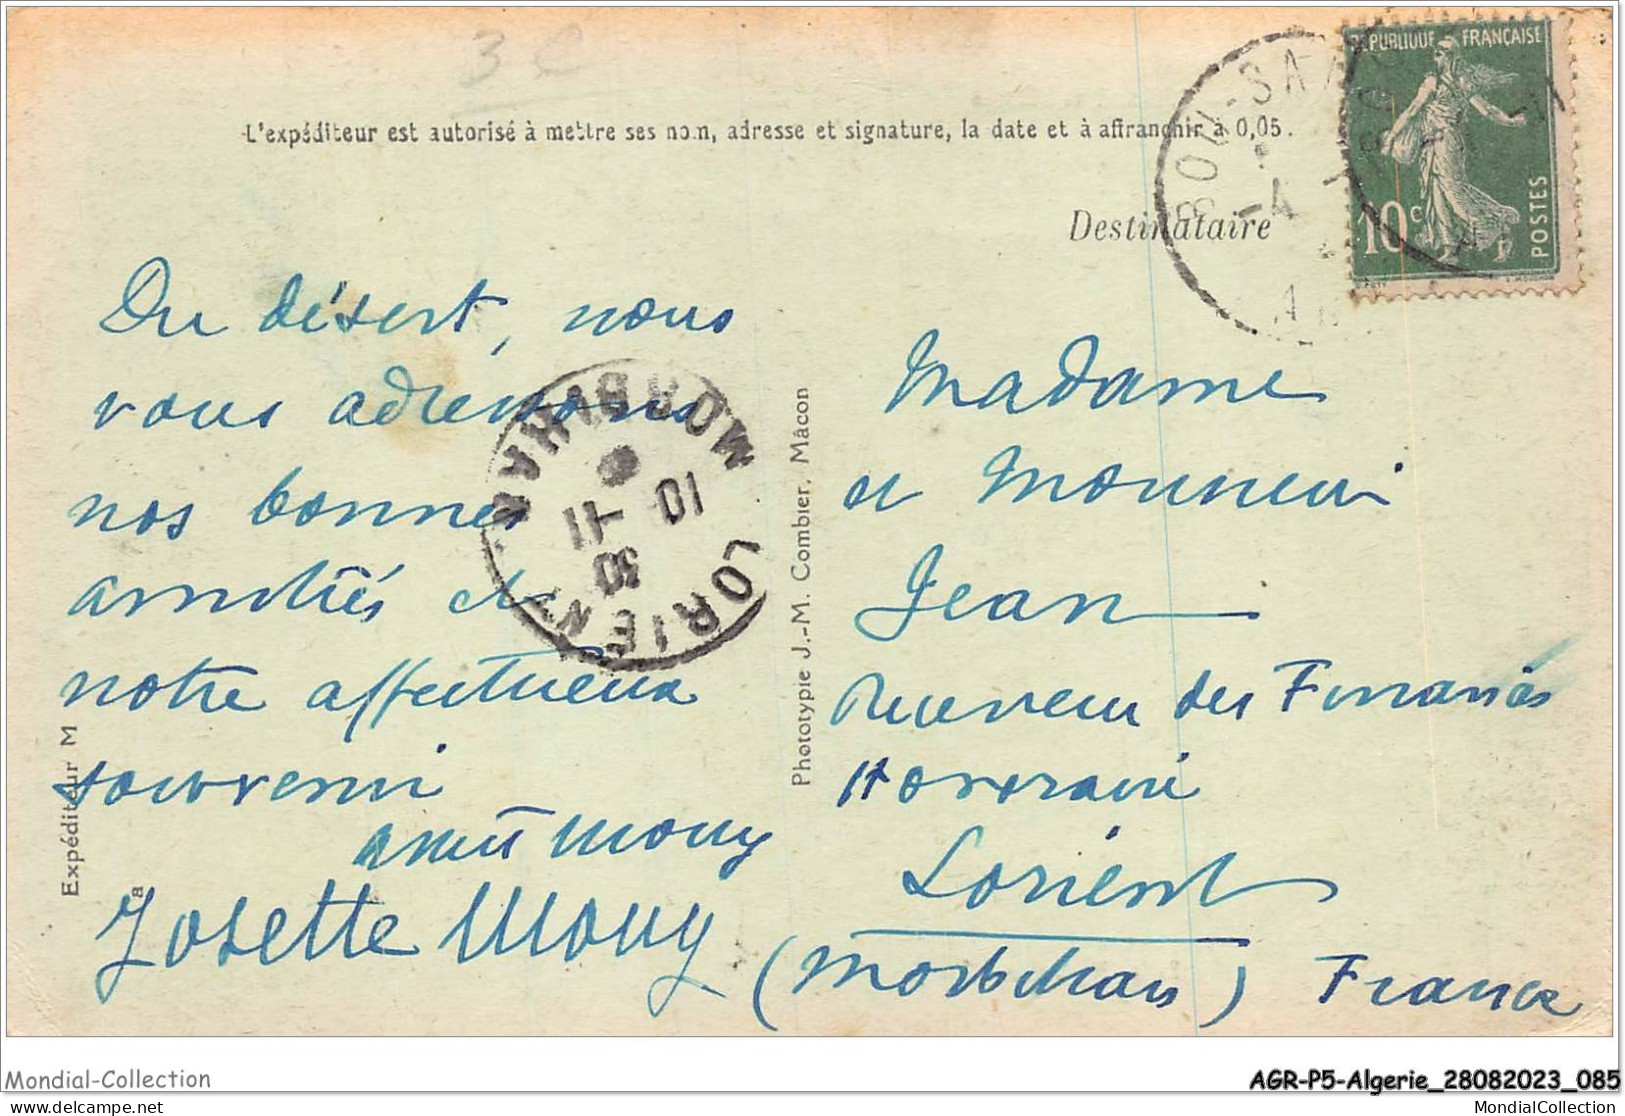 3 C
L'expéditeur est autorisé à mettre ses nom, adresse et signature, la date et à affranchir à 0,05.
REPUBLIQUE FRANÇAISE
10c
POSTES
BOU-SAADA
-4
Destinataire
Du désert, nous
vous adressons
nos bonnes
amitiés et
notre affectueux
souvenir
Mouy
Josette Mouy
MORBIHAN
LORIENT
10
30
Expéditeur M
à
Phototypie J.-M. Combier, Mâcon
Madame
et Monsieur
Jean
Receveur des Finances
Honoraire
Lorient
(Morbihan) France
Mondial-Collection
AGR-P5-Algerie_28082023_085
delcampe.net
MondialCollection